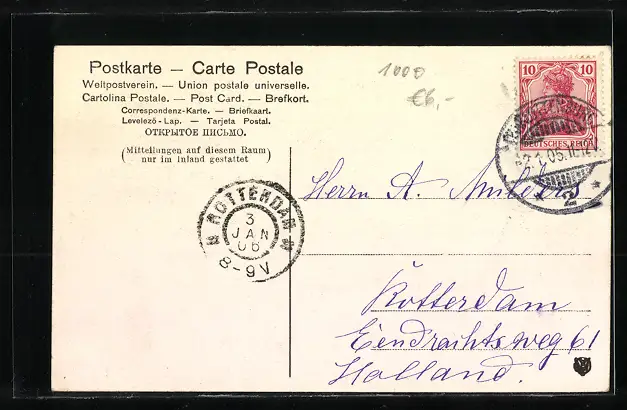 Postkarte — Carte Postale
Weltpostverein. — Union postale universelle.
Cartolina Postale. — Post Card. — Brefkort.
Correspondenz-Karte. — Briefkaart.
Levelező-Lap. — Tarjeta Postal.
ОТКРЫТОЕ ПИСЬМО.
(Mitteilungen auf diesem Raum)
nur im Inland gestattet
1000
€6,-
10 10
DEUTSCHES REICH
2
ROTTERDAM
3
JAN
06
8-9V
Herrn A.
Rotterdam
Eendrachtsweg 61
Holland.